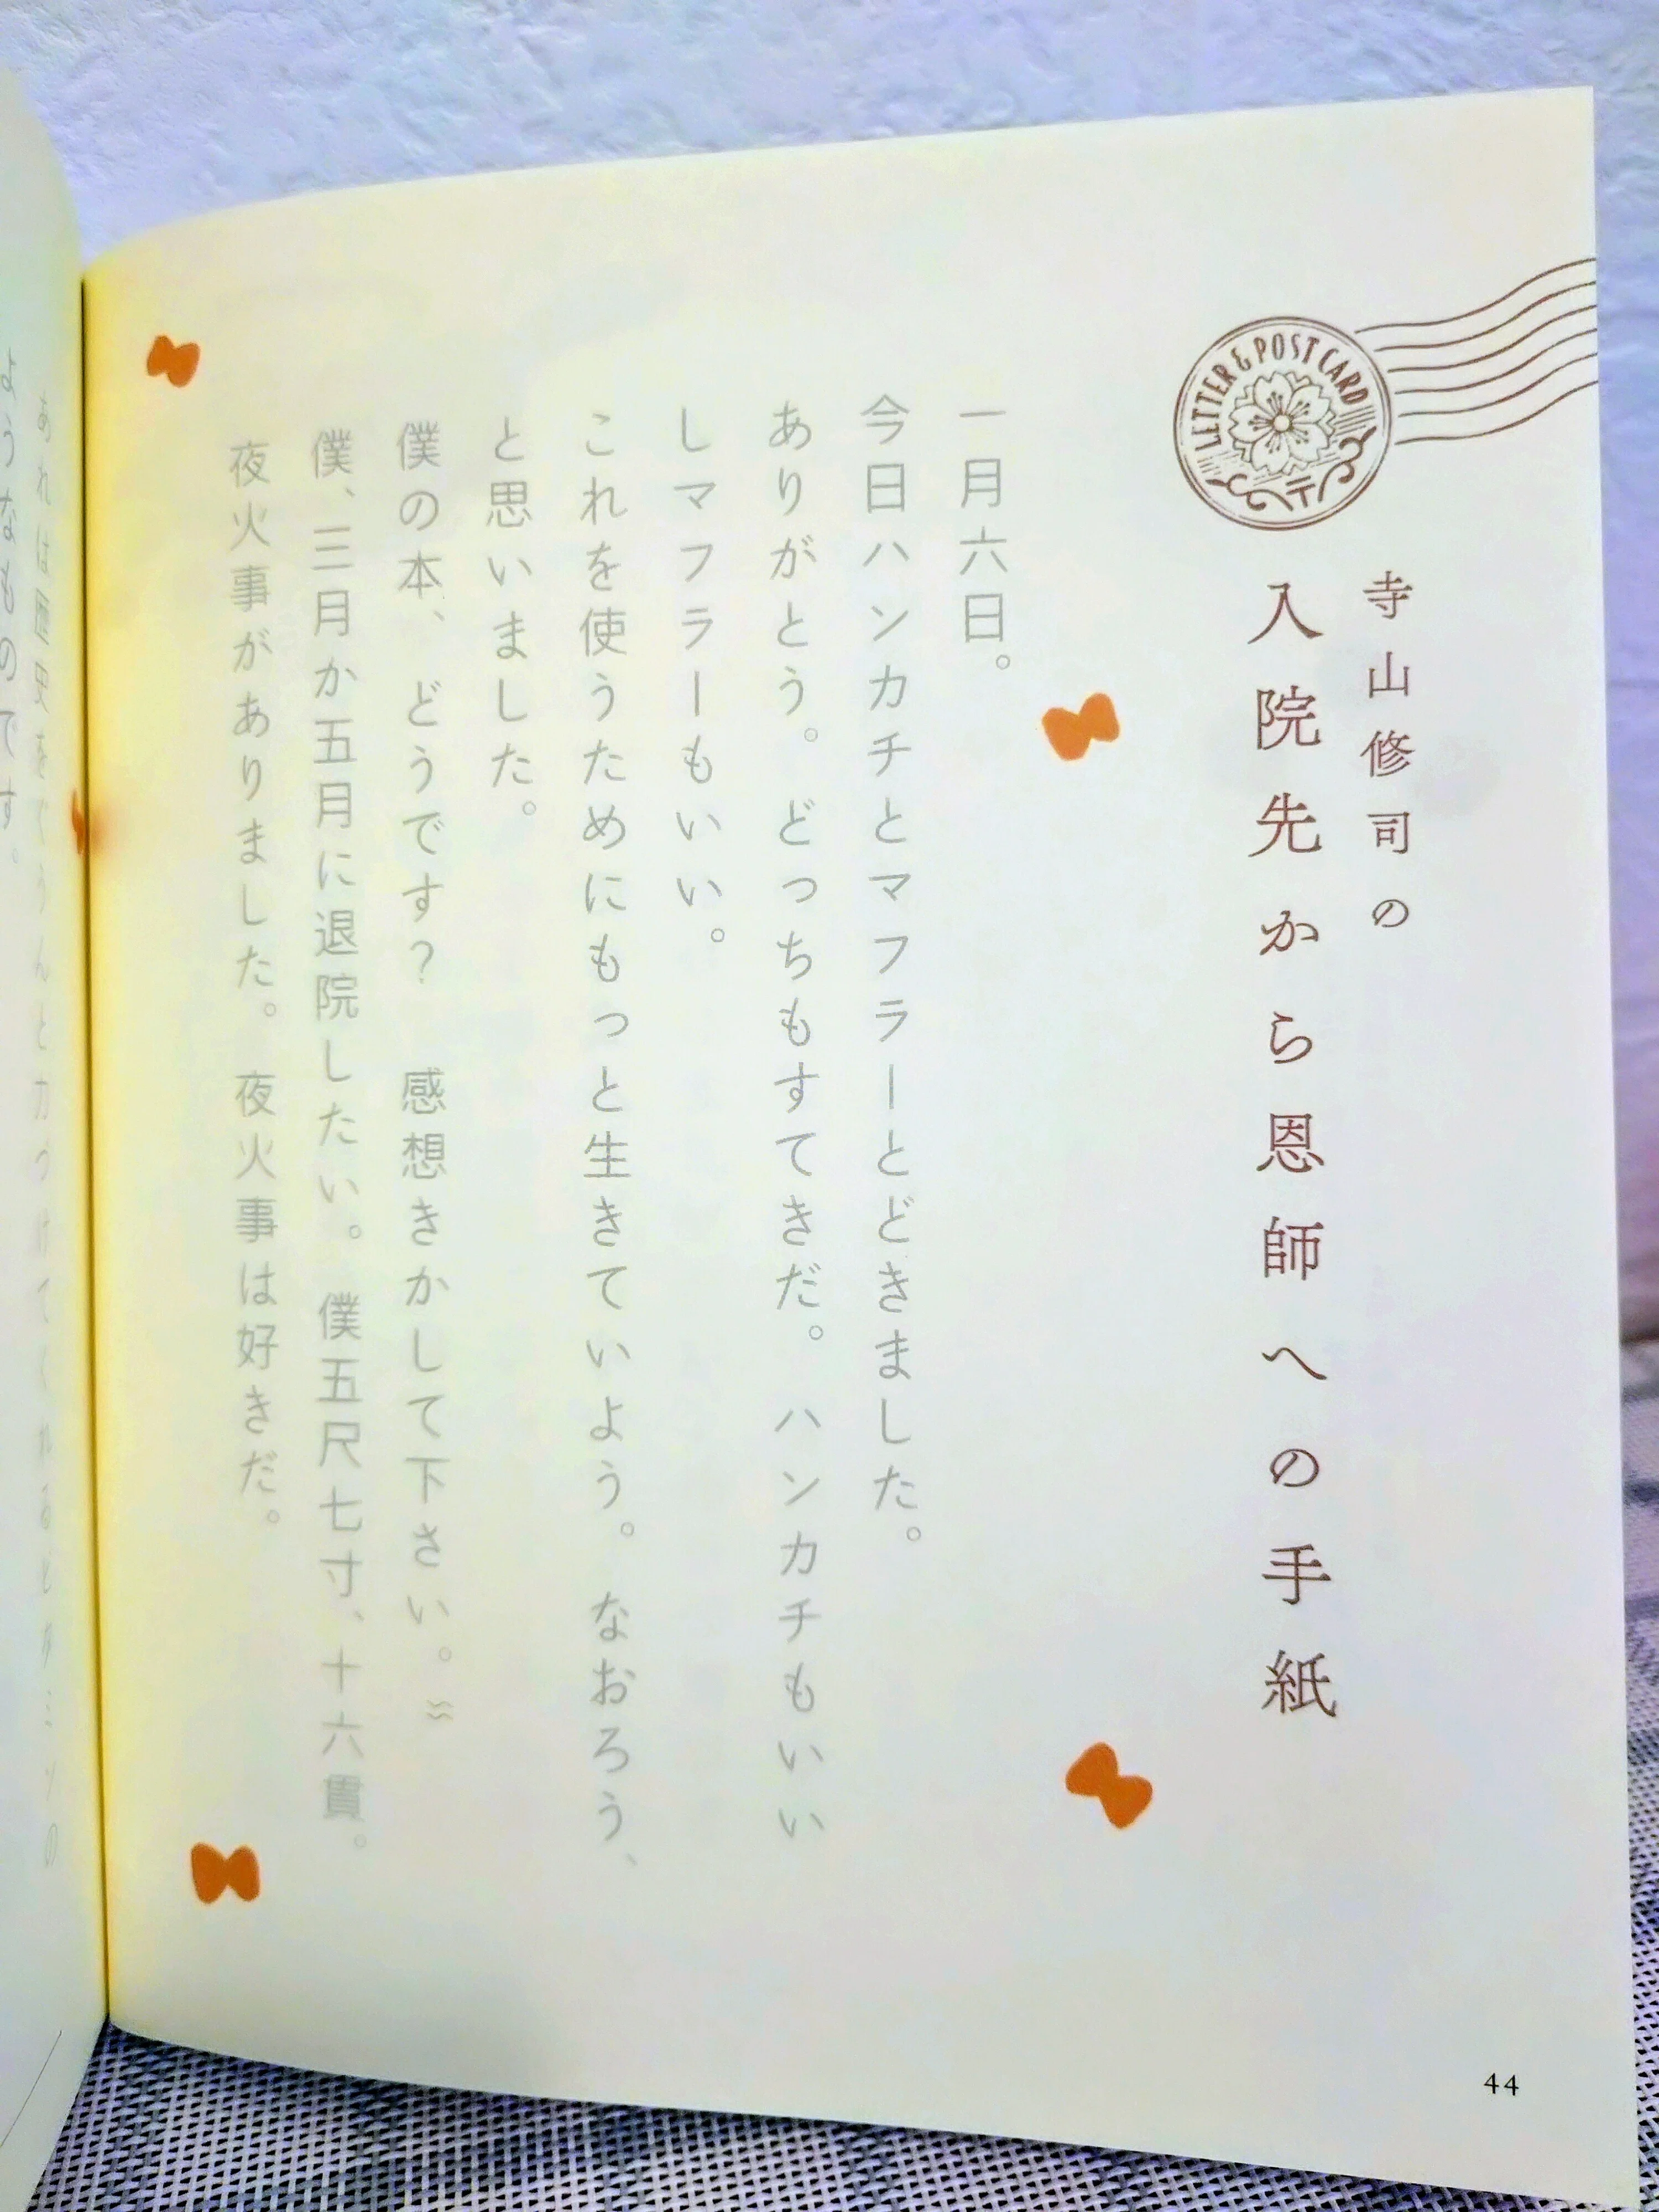 LETTER & POST CARD
寺山修司の
入院先から恩師への手紙
一月六日。
今日ハンカチとマフラーとどきました。
ありがとう。どっちもすてきだ。ハンカチもいい
しマフラーもいい。
これを使うためにもっと生きていよう。なおろう、
と思いました。
僕の本、どうです？　感想きかして下さい。
僕、三月か五月に退院したい。僕五尺七寸、十六貫。
夜火事がありました。夜火事は好きだ。
44
あれは歴史をぐうんと力づけてくれるビタミンの
ようなものです。